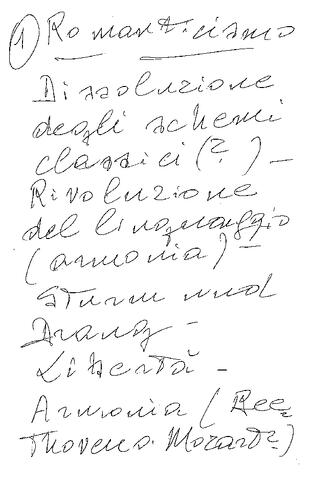 ① Romanticismo
Dissoluzione
degli schemi
classici (?) –
Rivoluzione
del linguaggio
(armonia) –
Sturm und
Drang –
Libertà –
Armonia (Bee=
thoven. Mozart?)